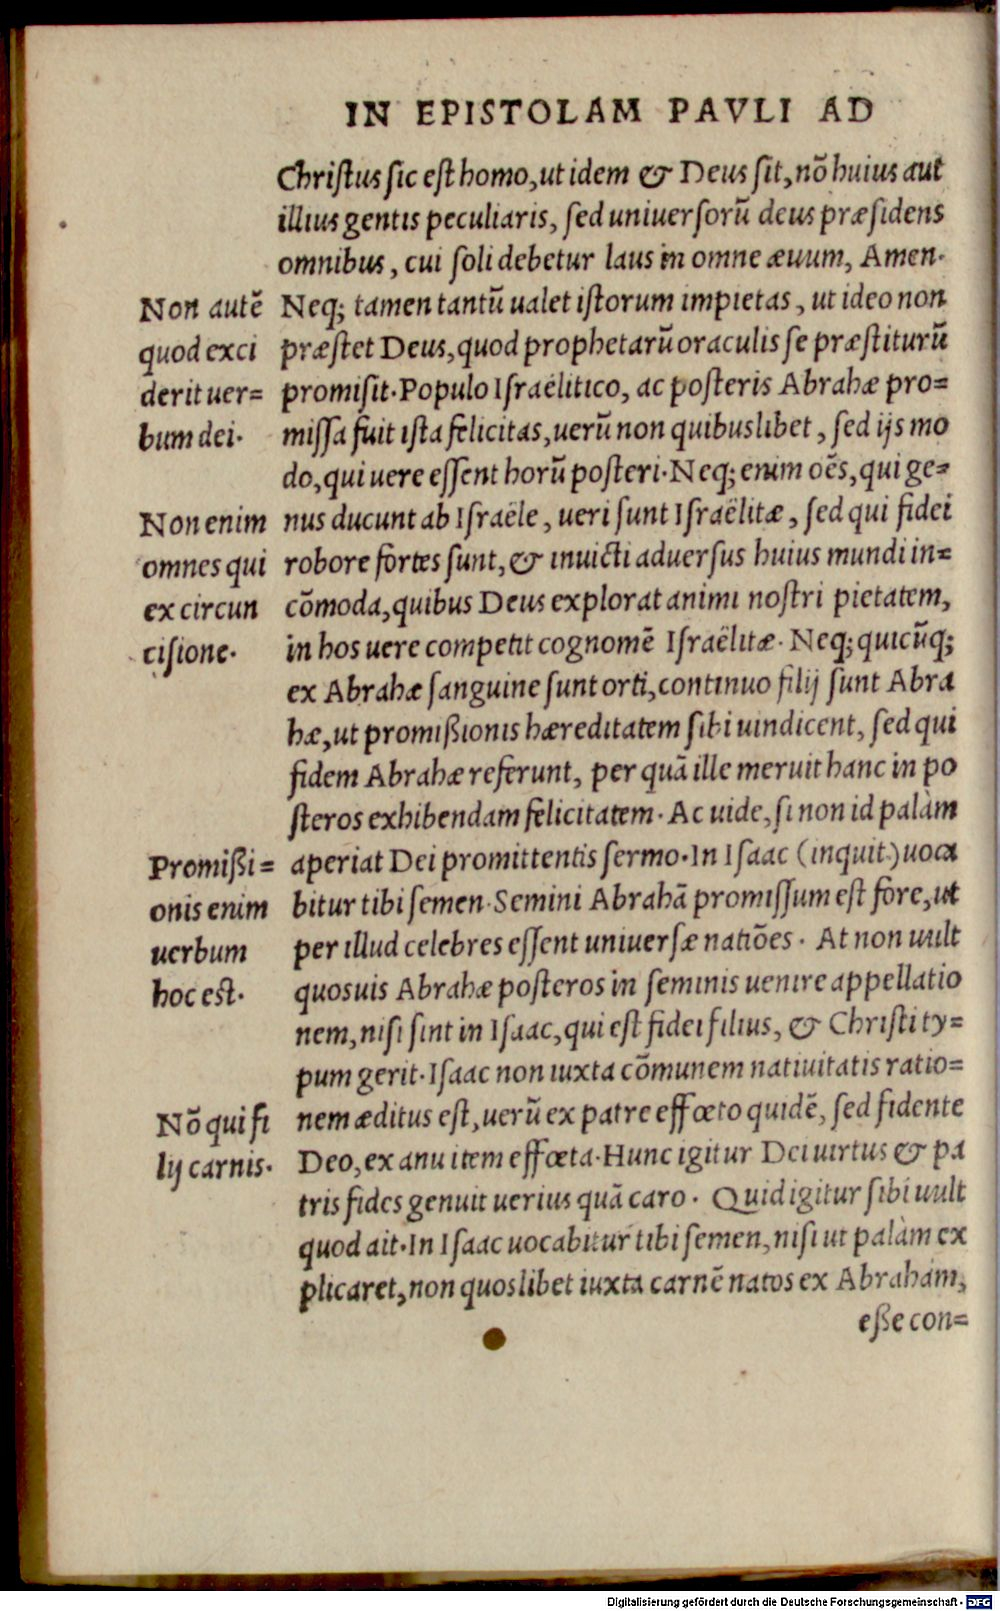 IN EPISTOLAM PAVLI AD
Christus sic est homo, ut idem & Deus sit, nõ huius aut
illius gentis peculiaris, sed uniuersorũ deus præsidens
omnibus, cui soli debetur laus in omne æuum, Amen.
Non autẽ
quod exci
derit uer=
bum dei.
Neq; tamen tantũ ualet istorum impietas, ut ideo non
præstet Deus, quod prophetarũ oraculis se præstiturũ
promisit. Populo Israëlitico, ac posteris Abrahæ pro=
missa fuit ista felicitas, uerũ non quibuslibet, sed ijs mo
do, qui uere essent horũ posteri. Neq; enim oẽs, qui ge=
Non enim
omnes qui
ex circun
cisione.
nus ducunt ab Israële, ueri sunt Israëlitæ, sed qui fidei
robore fortes sunt, & inuicti aduersus huius mundi in=
cõmoda, quibus Deus explorat animi nostri pietatem,
in hos uere competit cognomẽ Israëlitæ. Neq; quicũq;
ex Abrahæ sanguine sunt orti, continuo filij sunt Abra
hæ, ut promißionis hæreditatem sibi uindicent, sed qui
fidem Abrahæ referunt, per quã ille meruit hanc in po
steros exhibendam felicitatem. Ac uide, si non id palàm
Promißi=
onis enim
uerbum
hoc est.
aperiat Dei promittentis sermo. In Isaac (inquit) uoca
bitur tibi semen. Semini Abrahã promissum est fore, ut
per illud celebres essent uniuersæ natiões. At non uult
quosuis Abrahæ posteros in seminis uenire appellatio
nem, nisi sint in Isaac, qui est fidei filius, & Christi ty=
pum gerit. Isaac non iuxta cõmunem natiuitatis ratio=
Nõ qui fi
lij carnis.
nem æditus est, uerũ ex patre effœto quidẽ, sed fidente
Deo, ex anu item effœta. Hunc igitur Dei uirtus & pa
tris fides genuit uerius quã caro. Quid igitur sibi uult
quod ait. In Isaac uocabitur tibi semen, nisi ut palàm ex
plicaret, non quoslibet iuxta carnẽ natos ex Abraham,
eße con=
Digitalisierung gefördert durch die Deutsche Forschungsgemeinschaft - DFG